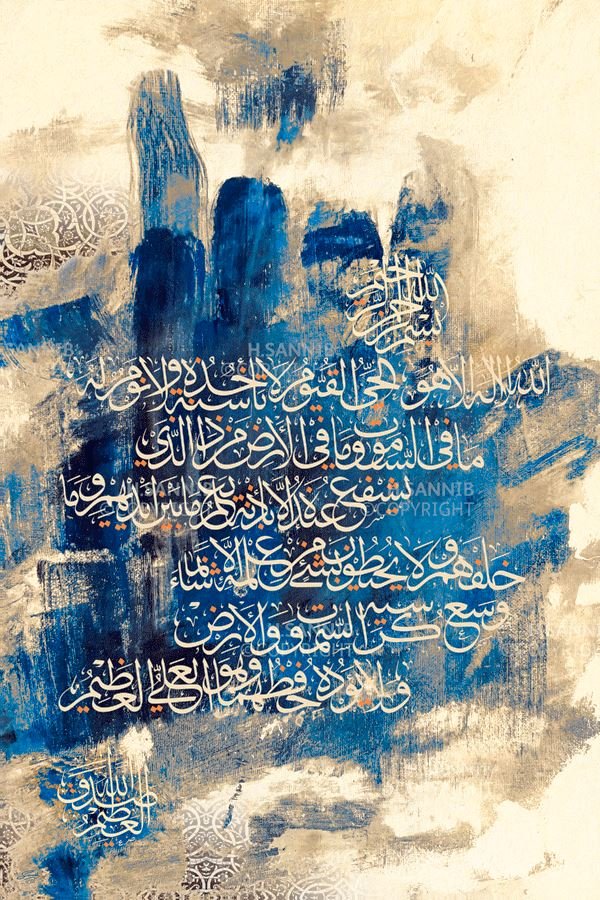 بسم الله الرحمن الرحيم
الله لا إله إلا هو الحي القيوم لا تأخذه سنة ولا نوم له
ما في السموت وما في الأرض من ذا الذي
يشفع عنده إلا بإذنه يعلم ما بين أيديهم وما
خلفهم ولا يحيطون بشيء من علمه إلا بما شاء
وسع كرسيه السموت والأرض
ولا يئوده حفظهما وهو العلي العظيم
صدق الله العظيم
H.SANNIB
SANNIB
COPYRIGHT